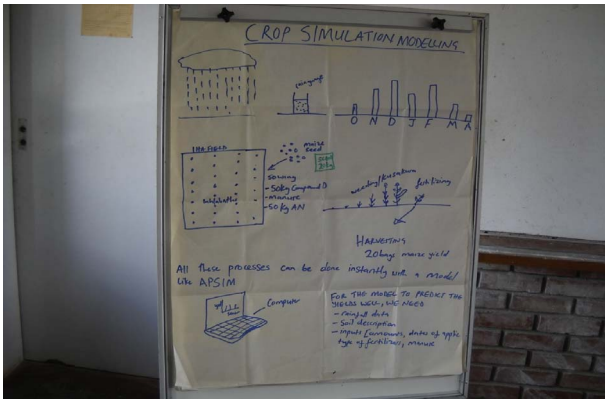 CROP SIMULATION MODELLING
O N D J F M A
1HA FIELD
maize
seed
sowing
- 50kg Compound D
- manure
- 50kg AN
weeding/
fertilizing
HARVESTING
20 bags maize yield
All these processes can be done instantly with a model
like APSIM
Computer
FOR THE MODEL TO PREDICT THE
YIELDS WELL, WE NEED
- rainfall data
- Soil description
- inputs (amounts, dates of applic
type of fertilizers, manure